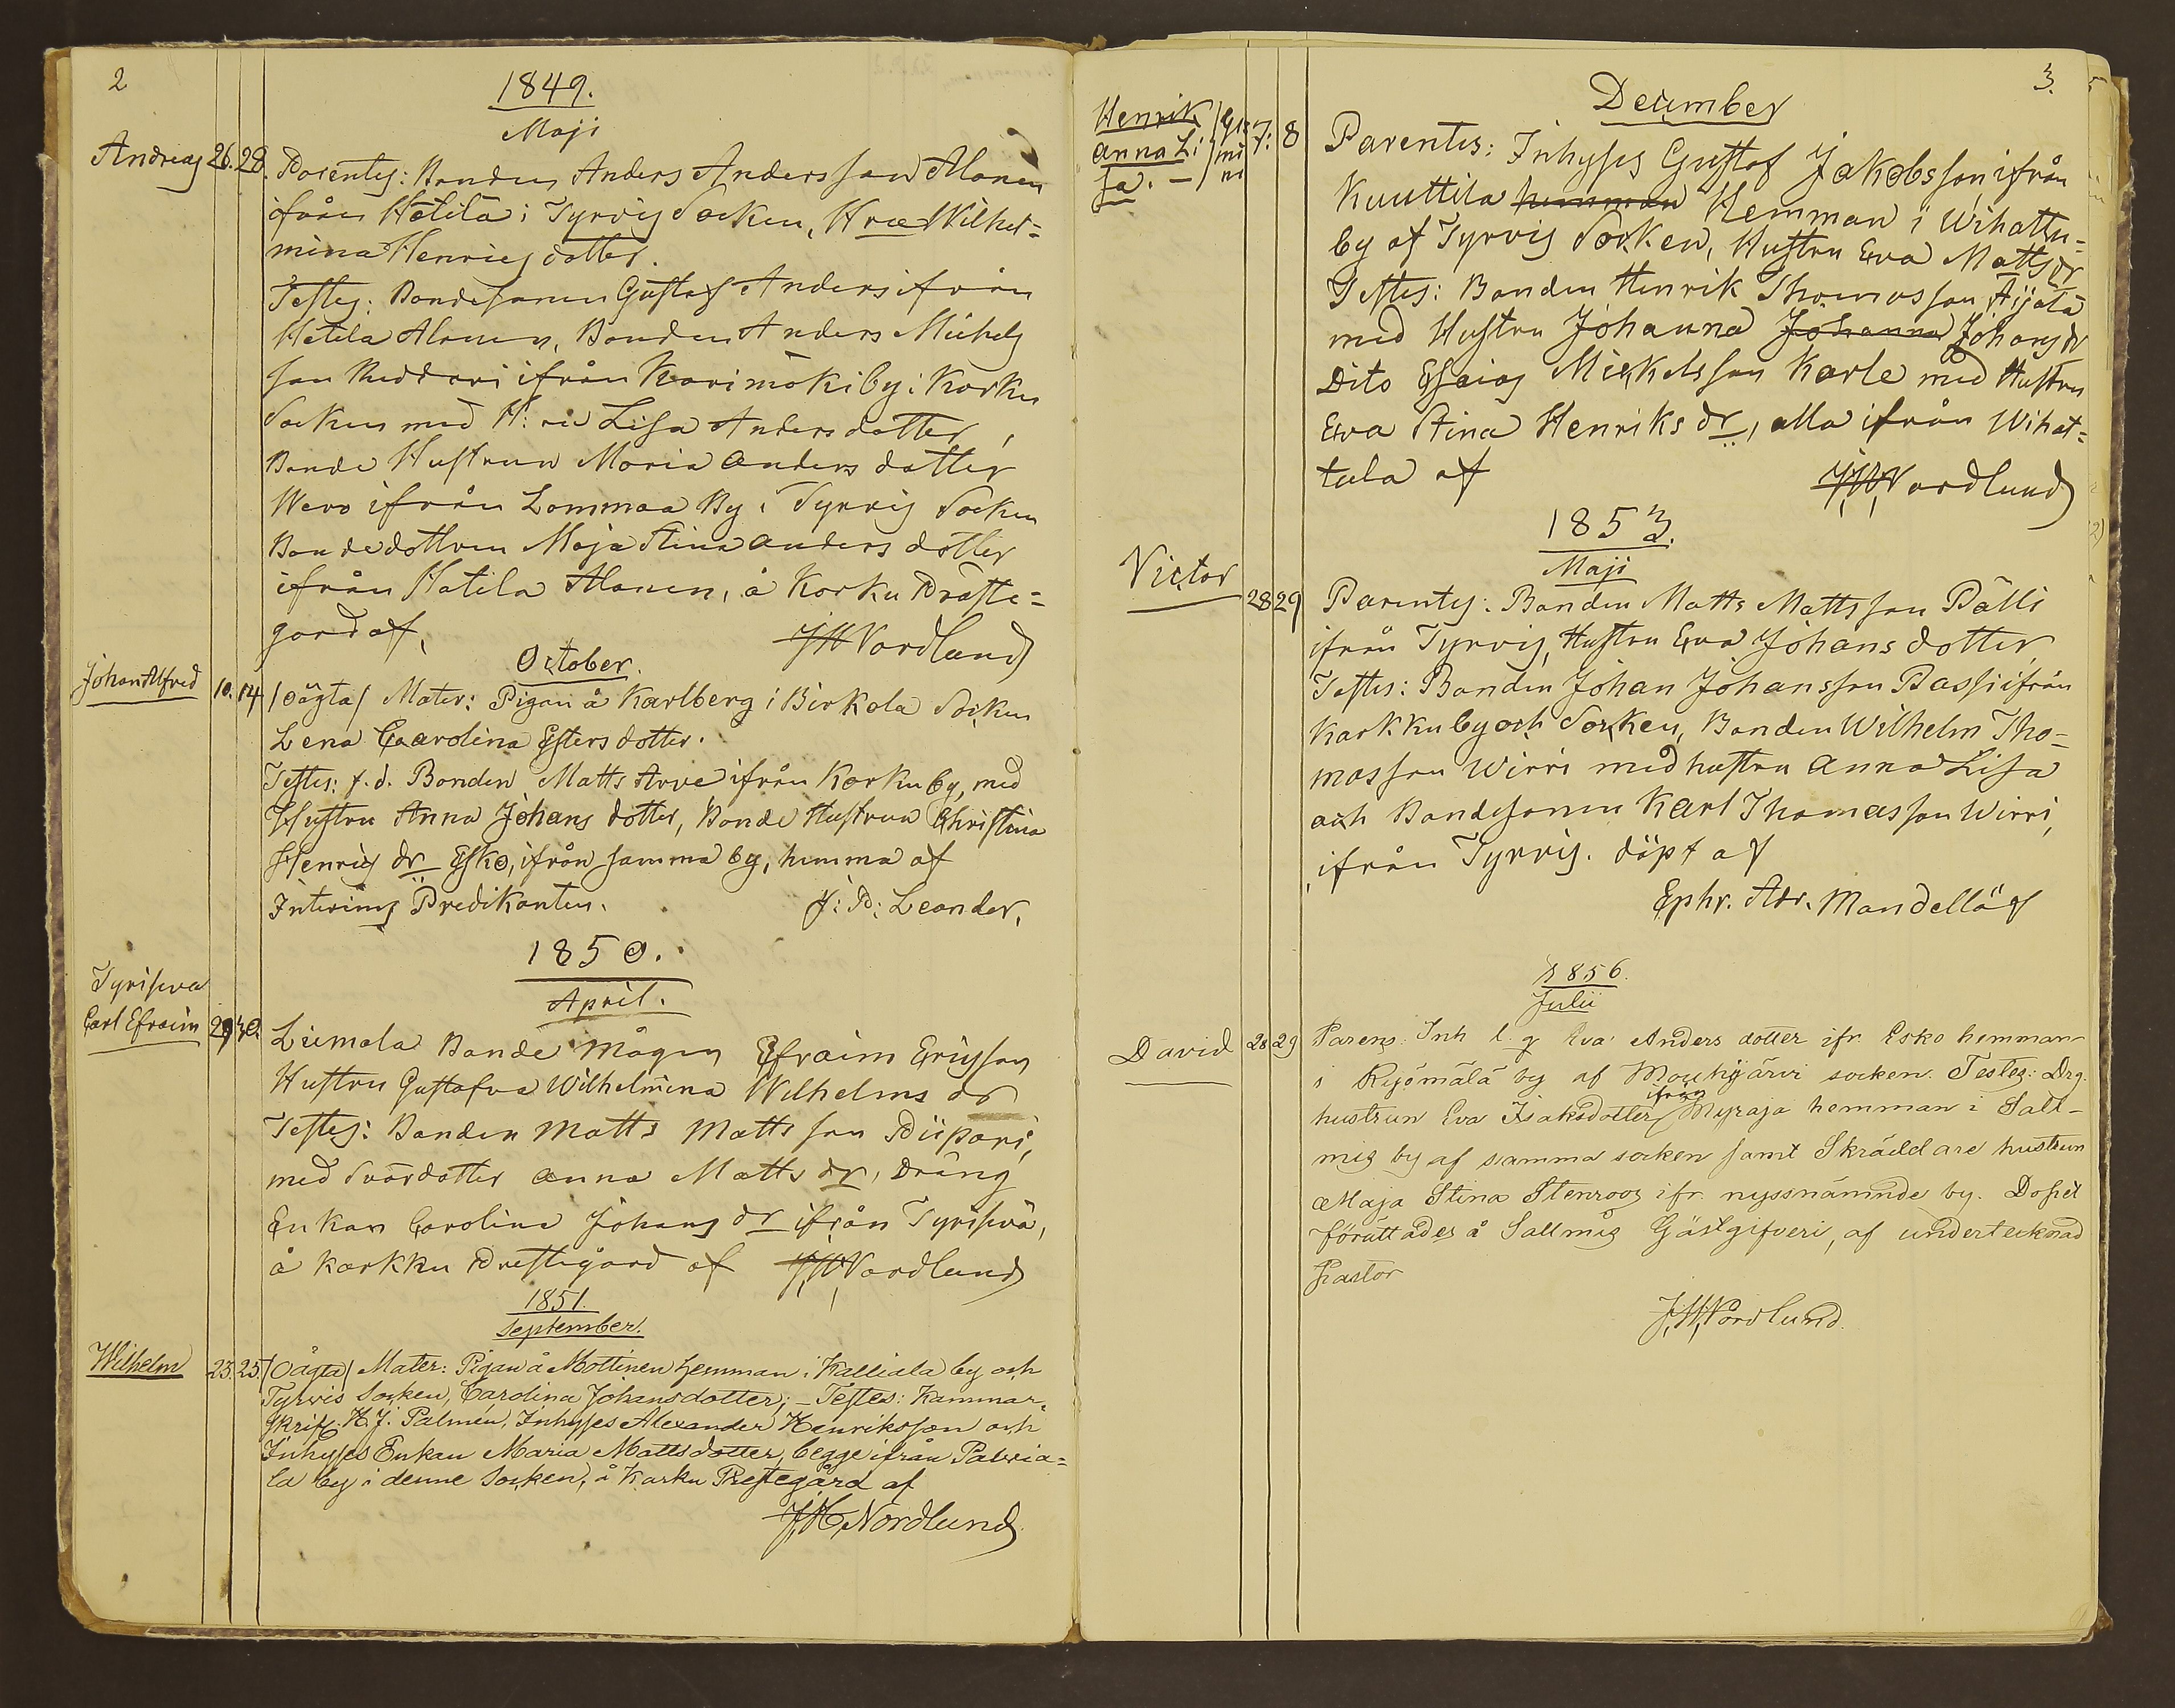 2
1849.
Maji
Andreas 26. 28. Parentes: Bonden Anders Andersson Alanen
ifrån Hatila i Tyrvis Socken, Hru Wilhel=
mina Henricsdotter.
Testes: Bondesonen Gustaf Anders ifrån
Hatila Alanen, Bonden Anders Michels
son Knddari ifrån Karimäki by i Karku
Socken med H:ru Lisa Andersdotter,
Bonde Hustrun Maria Anders dotter
Wero ifrån Lommaa By i Tyrvis Socken
Bondedottren Maja Stina Anders dotter
ifrån Hatila Alanen, å Karku Präste=
gård af, JHNordlund
October.
Johan Alfred 10. 14 /oägta/ Mater: Pigan å Karlberg i Birkala Socken
Lena Carolina Estersdotter.
Testes: f.d. Bonden Matts Arve ifrån Karku by, med
Hustru Anna Johans dotter, Bonde Hustrun Christina
Henrics dr Esko, ifrån samma by, hemma af
Interims Predikanten. J: P: Leander.
1850.
April.
Tyriseva
Carl Efraim 29 30. Liemala Bonde Mågen Efraim Ericsson
Hustru Gustafva Wilhelmina Wilhelms dr
Testes: Bonden Matts Mattsson Piipari,
med Svärdotter Anna Matts dr, Dräng
Enkan Carolina Johans dr ifrån Tyrisevä,
å Karkku Prestegård af JHNordlund
1851.
September.
Wilhelm 23. 25. /Oägta/ Mater: Pigan å Mottinen hemman i Kalliala by och
Tyrvis Socken, Carolina Johansdotter; - Testes: Kammar-
skrif. K. J. Palmén, Inhyses Alexander Henriksson och
Inhyses Enkan Maria Mattsdotter, begge ifrån Palvia=
la by i denne Socken, å Karku Prestegård af
JH,Nordlund
3.
December
Henrik Ge
Anna Li mi 7: 8 Parentes: Inhyses Gustaf Jakobsson ifrån
sa. - ni Kuuttila hemman Hemman i Wihattu=
by af Tyrvis Socken, Hustru Eva Matts dr
Testes: Bonden Henrik Thomasson Äijälä
med Hustru Johanna Johanna Johans dr
Dito Esaias Mickelsson Karle med Hustru
Eva Stina Henriks dr, alla ifrån Wihat=
tula af JHNordlund
1853.
Maji
Victor 28 29 Parentes: Bonden Matts Mattsson Pälli
ifrån Tyrvis, Hustru Eva Johansdotter
Testes: Bonden Johan Johansson Passi ifrån
Karkku by och Socken, Bonden Wilhelm Tho-
masson Wirri med hustru Anna Lisa
och Bondesonen Karl Thomasson Wirri,
ifrån Tyrvis. döpt af
Ephr. Adr. Mandellöf
1856.
Julii
David 28 29 Parens: Inh l. q Eva Anders dotter ifr. Esko hemman
i Kyömälä by af Mouhijärvi socken. Testes: Drg.
hustrun Eva Isaksdotter ifrån Myraja hemman i Salt-
mis by af samma socken samt Skräddare hustrun
Maja Stina Stenroos ifr. nyssnämnde by. Dopet
förättades å Saltmis Gästgifveri, af undertecknad
Pastor
J,H,Nordlund.